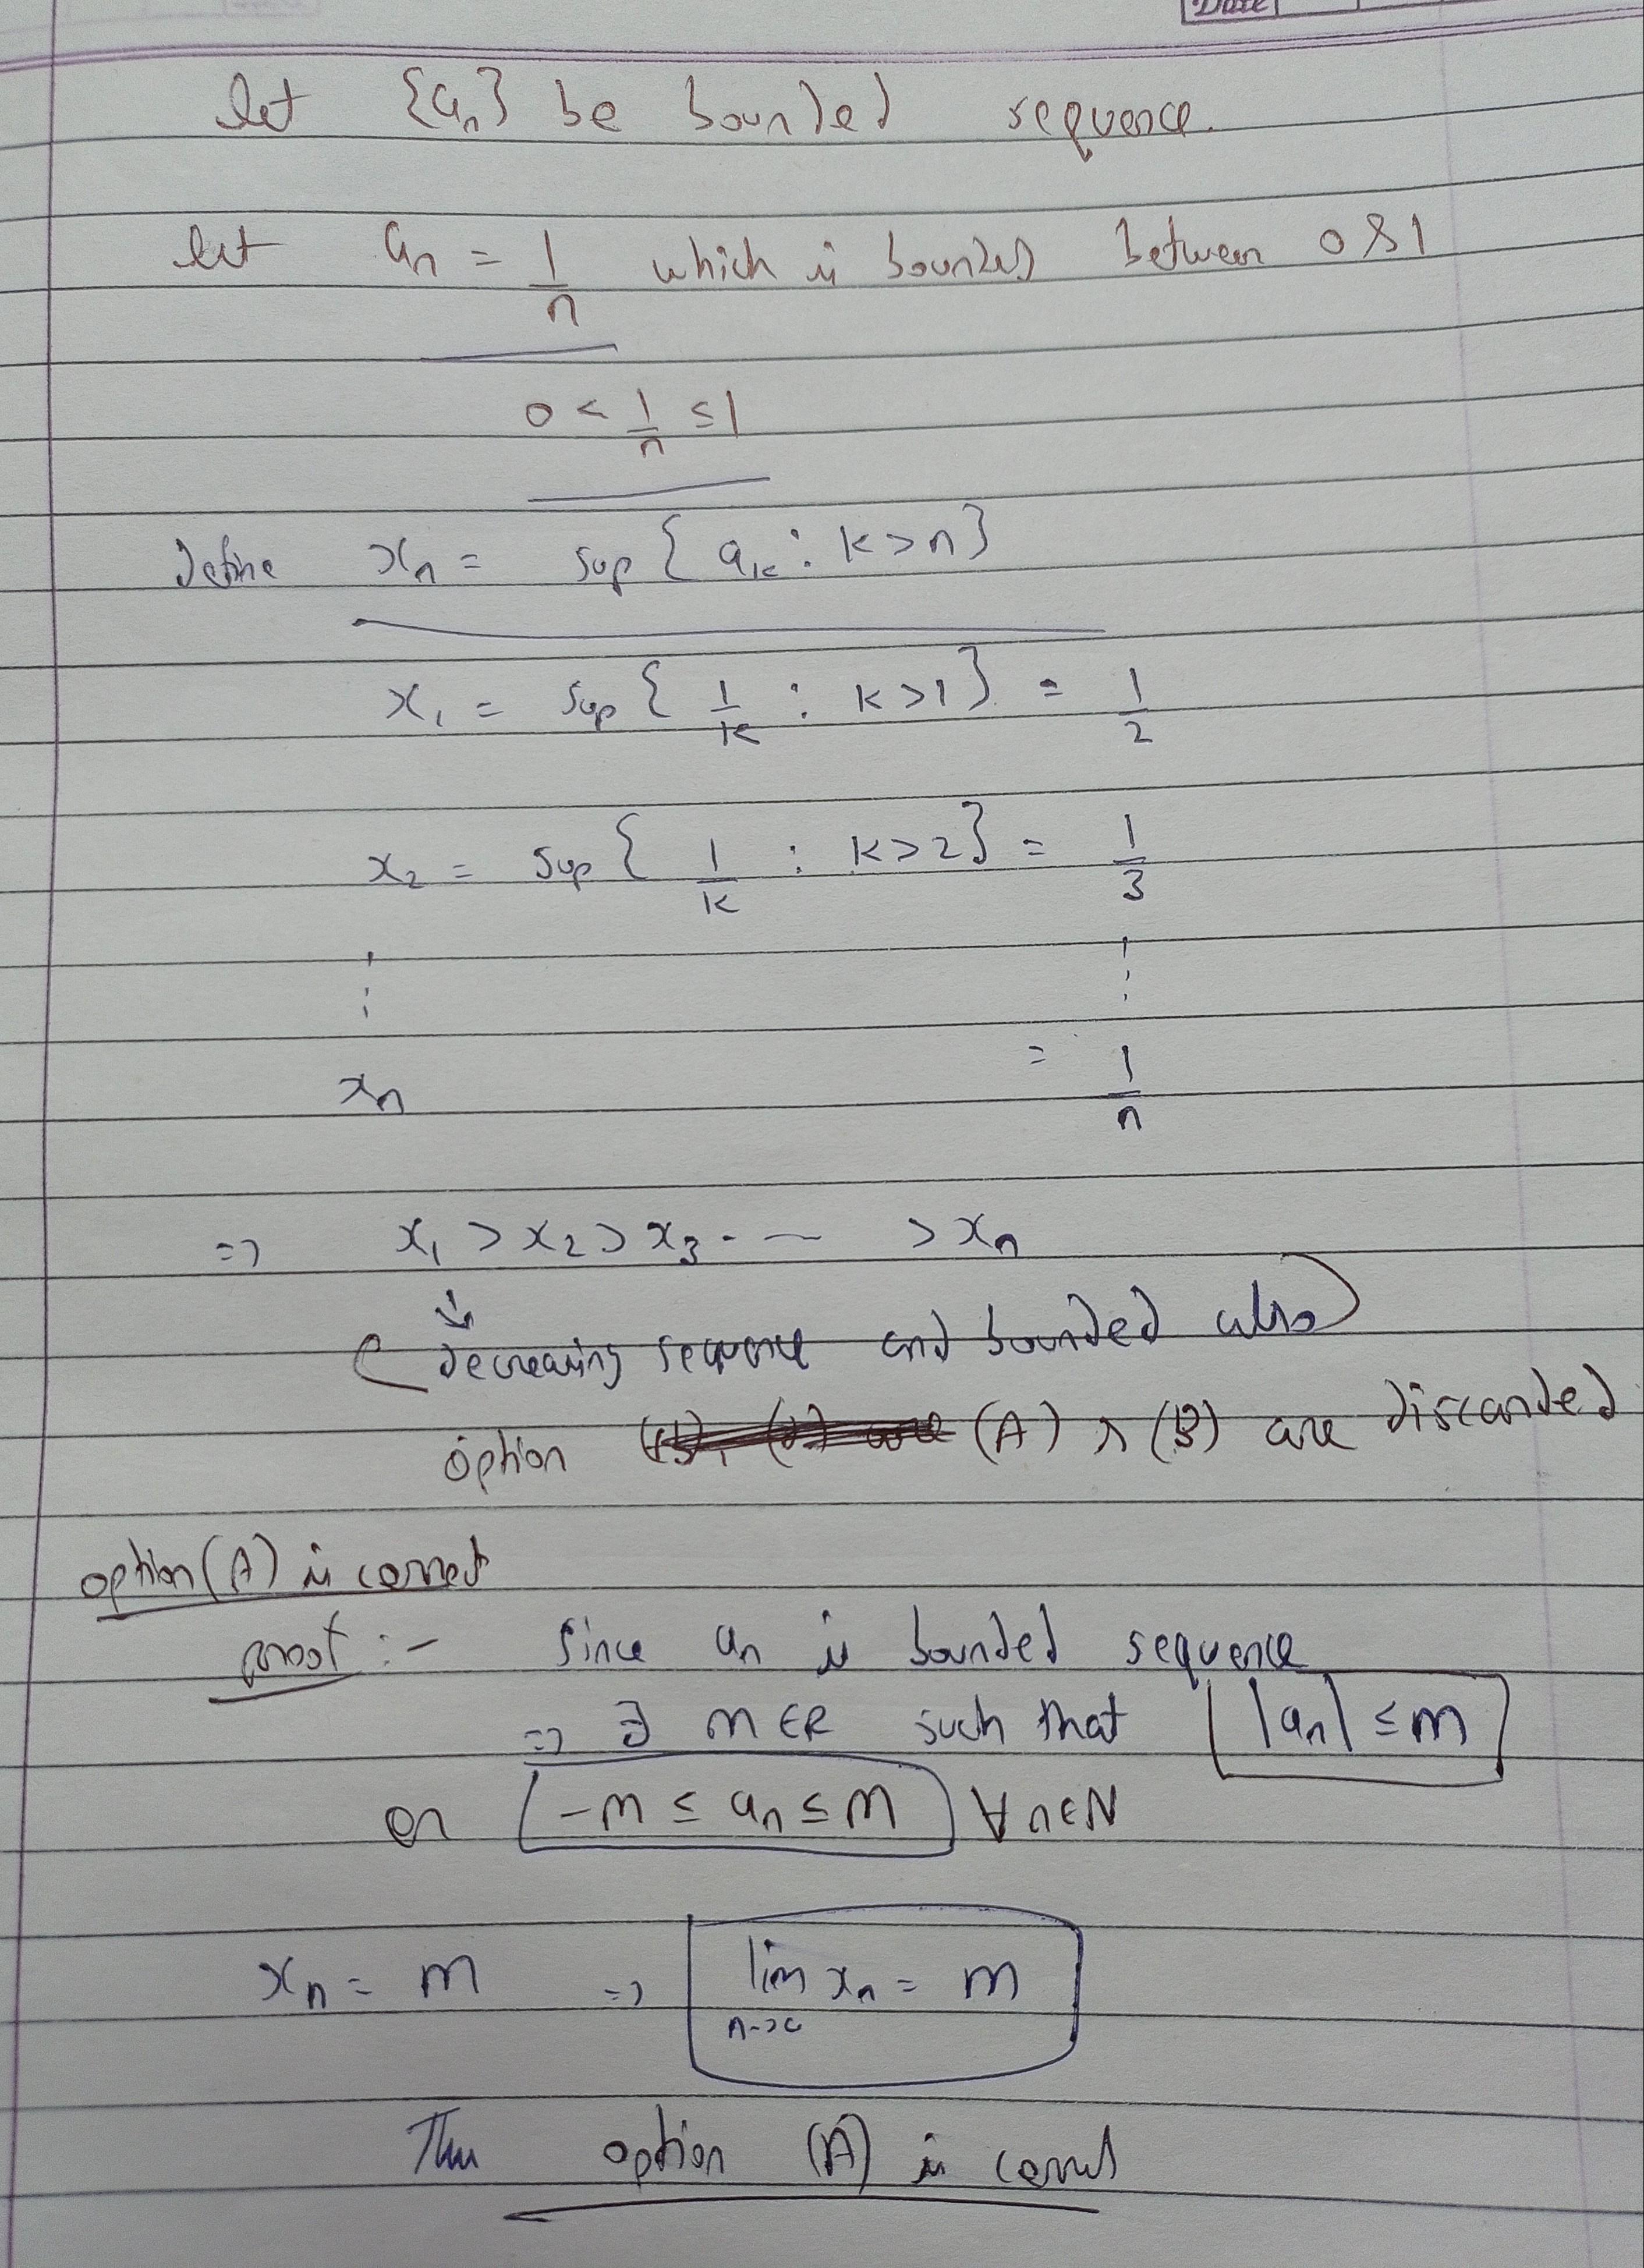 Date
let {aₙ} be bounded sequence.
let aₙ = 1/n which is bounded between 0 & 1
0 < 1/n ≤ 1
Define xₙ = sup { aₖ : k > n }
x₁ = sup { 1/k : k > 1 } = 1/2
x₂ = sup { 1/k : k > 2 } = 1/3
⋮ ⋮
xₙ = 1/n
=> x₁ > x₂ > x₃ . - — > xₙ
(decreasing sequence and bounded also)
option (A) (B) are discarded
option (A) is correct
proof :- Since aₙ is bounded sequence
=> ∃ m ∈ R such that |aₙ| ≤ m
or -m ≤ aₙ ≤ m ∀ n ∈ N
xₙ = m => lim xₙ = m
Thus option (A) is correct